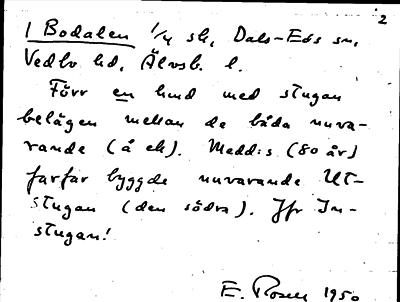 2
1 Bodalen 1/4 sk, Dals-Eds sn,
Vedbo hd, Älvsb. l.
Förr en lund med stugan
belägen mellan de båda nuva-
rande (å ek). Medd:s (80 år)
farfar byggde nuvarande Ut-
stugan (den södra). Jfr In-
stugan!
E. Rosell 1950